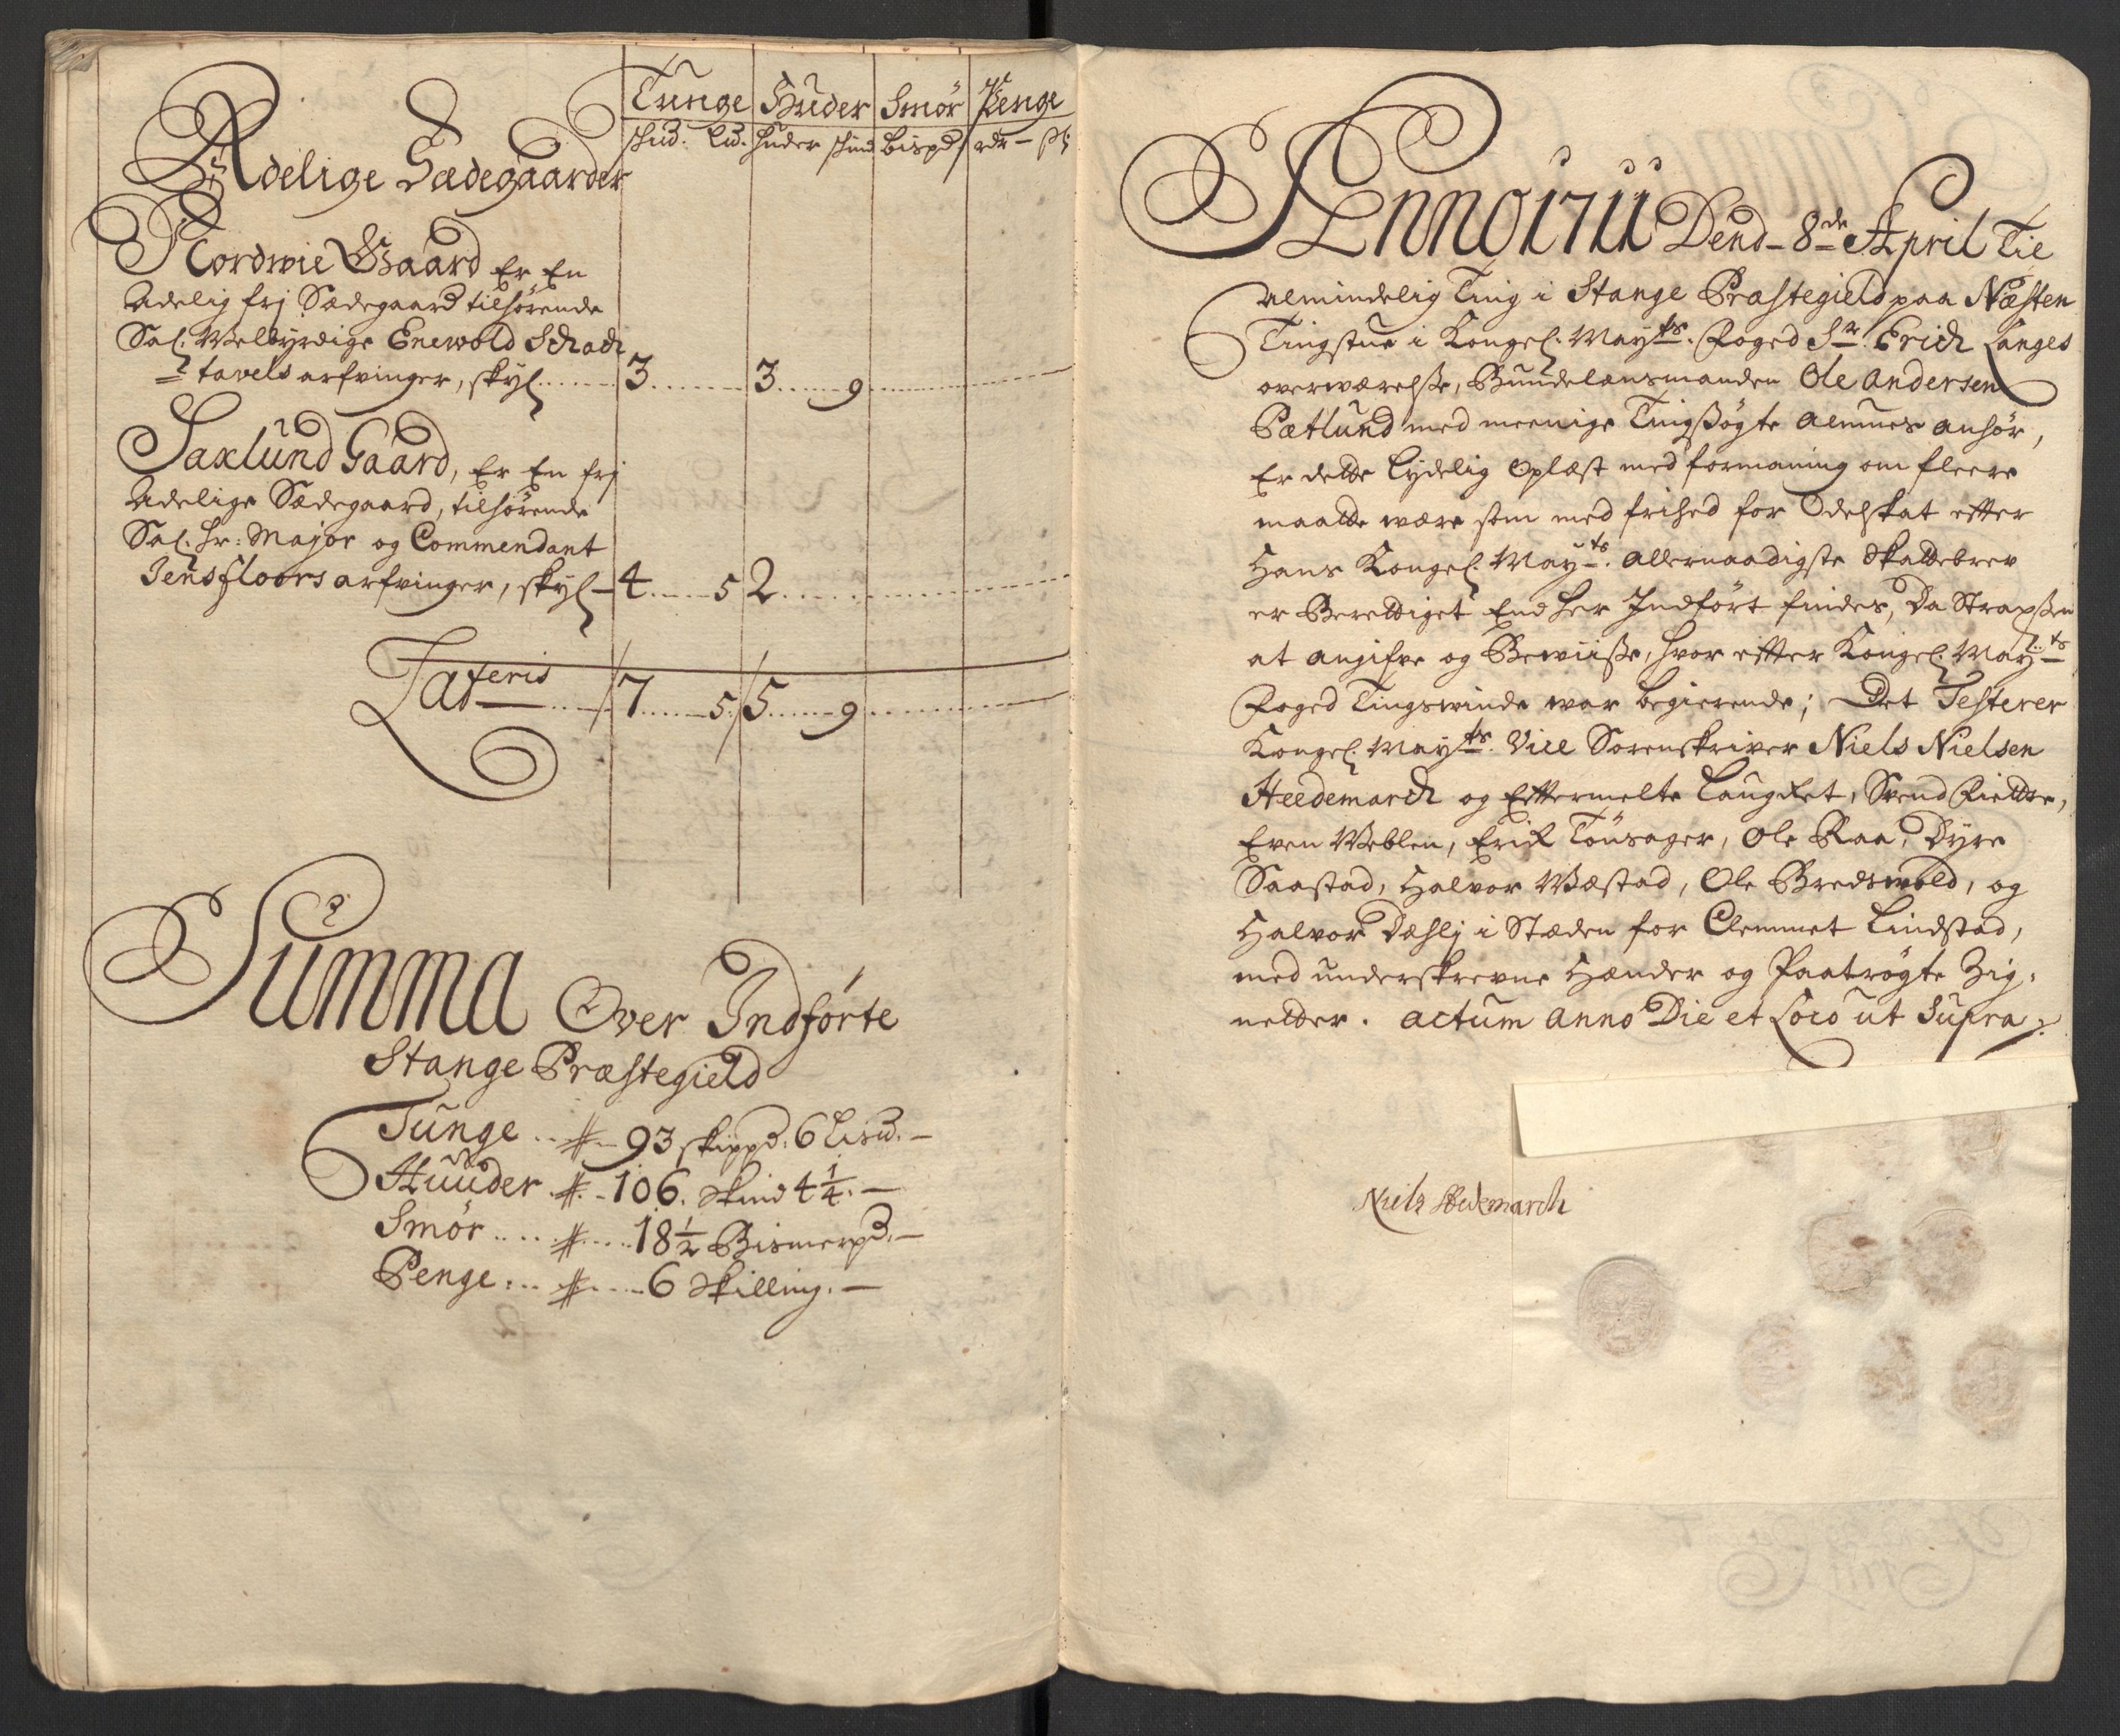 Tunge Huder Smør Penge
skud. Lud. huder skind Bispd rdr - sk
Adelige Sædegaarder
Nordwie Gaard Er En
Adelig frj Sædegaard tilhørende
Sal. Welbyrdige Enewold Schach
= tavels arfvinger, skyl...... 3...... 3.... 9
Saxlund Gaard, Er En frj
Adelige Sædegaard, tilhørende
Sal. Hr: Major og Commendant
Jens floors arfvinger, skyl - 4.... 5 2......
Lateris .... 7.... 5. 5.... 9......
Summa Over Indførte
Stange Præstegield
Tunge .. # - 93 skippd: 6 Lisd. -
Huuder # - 106. Skind 4 1/4. -
Smør .... # .... 18 1/2 Bismerpd. -
Penge: .. # .... 6 Skilling. -
Anno 1711 Dend - 8de April Til
Almindelig Ting i Stange Præstegield paa Næsten
Tingstue i Kongel. Mayts. Foged Sr. Erich Langes
overværelsse, Bundelænsmanden Ole Andersen
Pætlund med meenige Tingssøgte Almues anhør,
Er dette Lydelig Oplæst med formaning om fleere
maatte være som med frihed for Odelskat efter
Hans Kongel. Mayts. Allernaadigste Skattebrev
er Berettiget End her Indført findes, Da Strapssen
at angifve og Bewiisse, hvor efter Kongel. Mayts
Foged Tingswinde war begierende; Det Testerer
Kongel. Mayts. Vice Sorenskriver Niels Nielsen
Heedemarch og Eftermelte Laugret, Svend Fiettre,
EvenWeblen, Erik Tousager, Ole Raa, Dyre
Saastad, Halvor Wæstad, Ole Bredswold, og
Halvor Dæhlj i Stæden for Clemmet Lindstad,
med underskrevne Hænder og Paatrøgte Zig-
netter. Actum Anno Die et Loco ut Supra
Niels Hedemarch